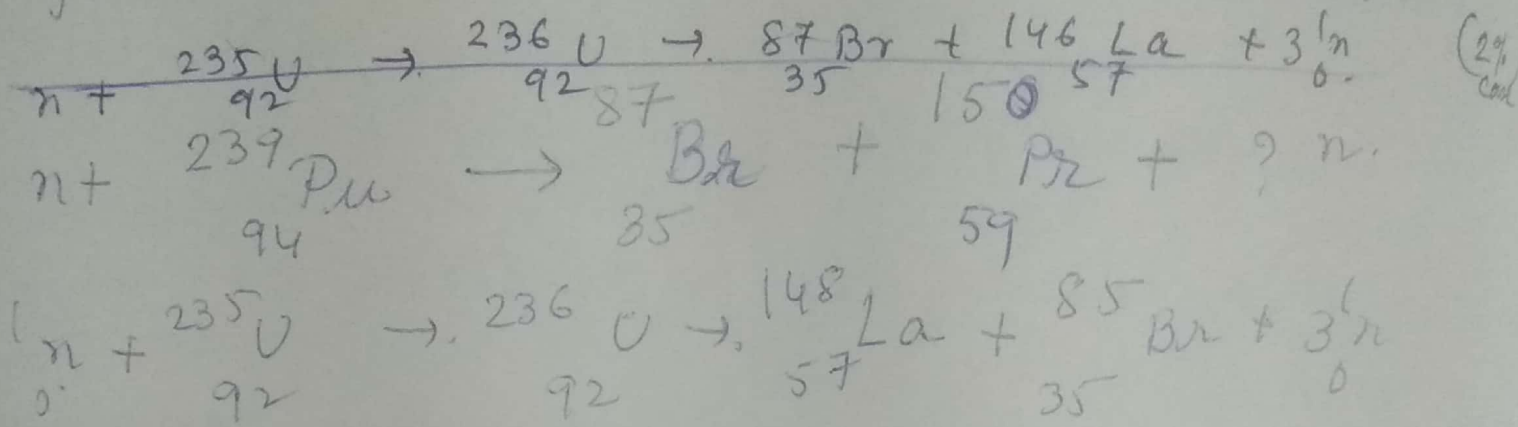 n + ²³⁵₉₂U → ²³⁶₉₂U → ⁸⁷₃₅Br + ¹⁴⁶₅₇La + 3¹₀n
n + ²³⁹₉₄Pu → ⁸⁷₃₅Br + ¹⁵⁰₅₉Pr + ? n.
¹₀n + ²³⁵₉₂U → ²³⁶₉₂U → ¹⁴⁸₅₇La + ⁸⁵₃₅Br + 3¹₀n